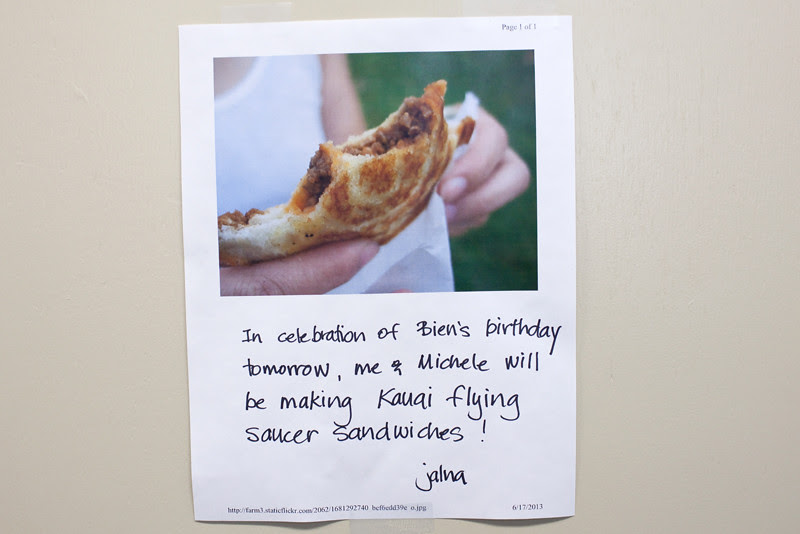 Page 1 of 1
In celebration of Bien's birthday
tomorrow, me & Michele will
be making Kauai flying
saucer sandwiches!
jalna
http://farm3.staticflickr.com/2062/1681292740_bcf6edd39e_o.jpg 6/17/2013